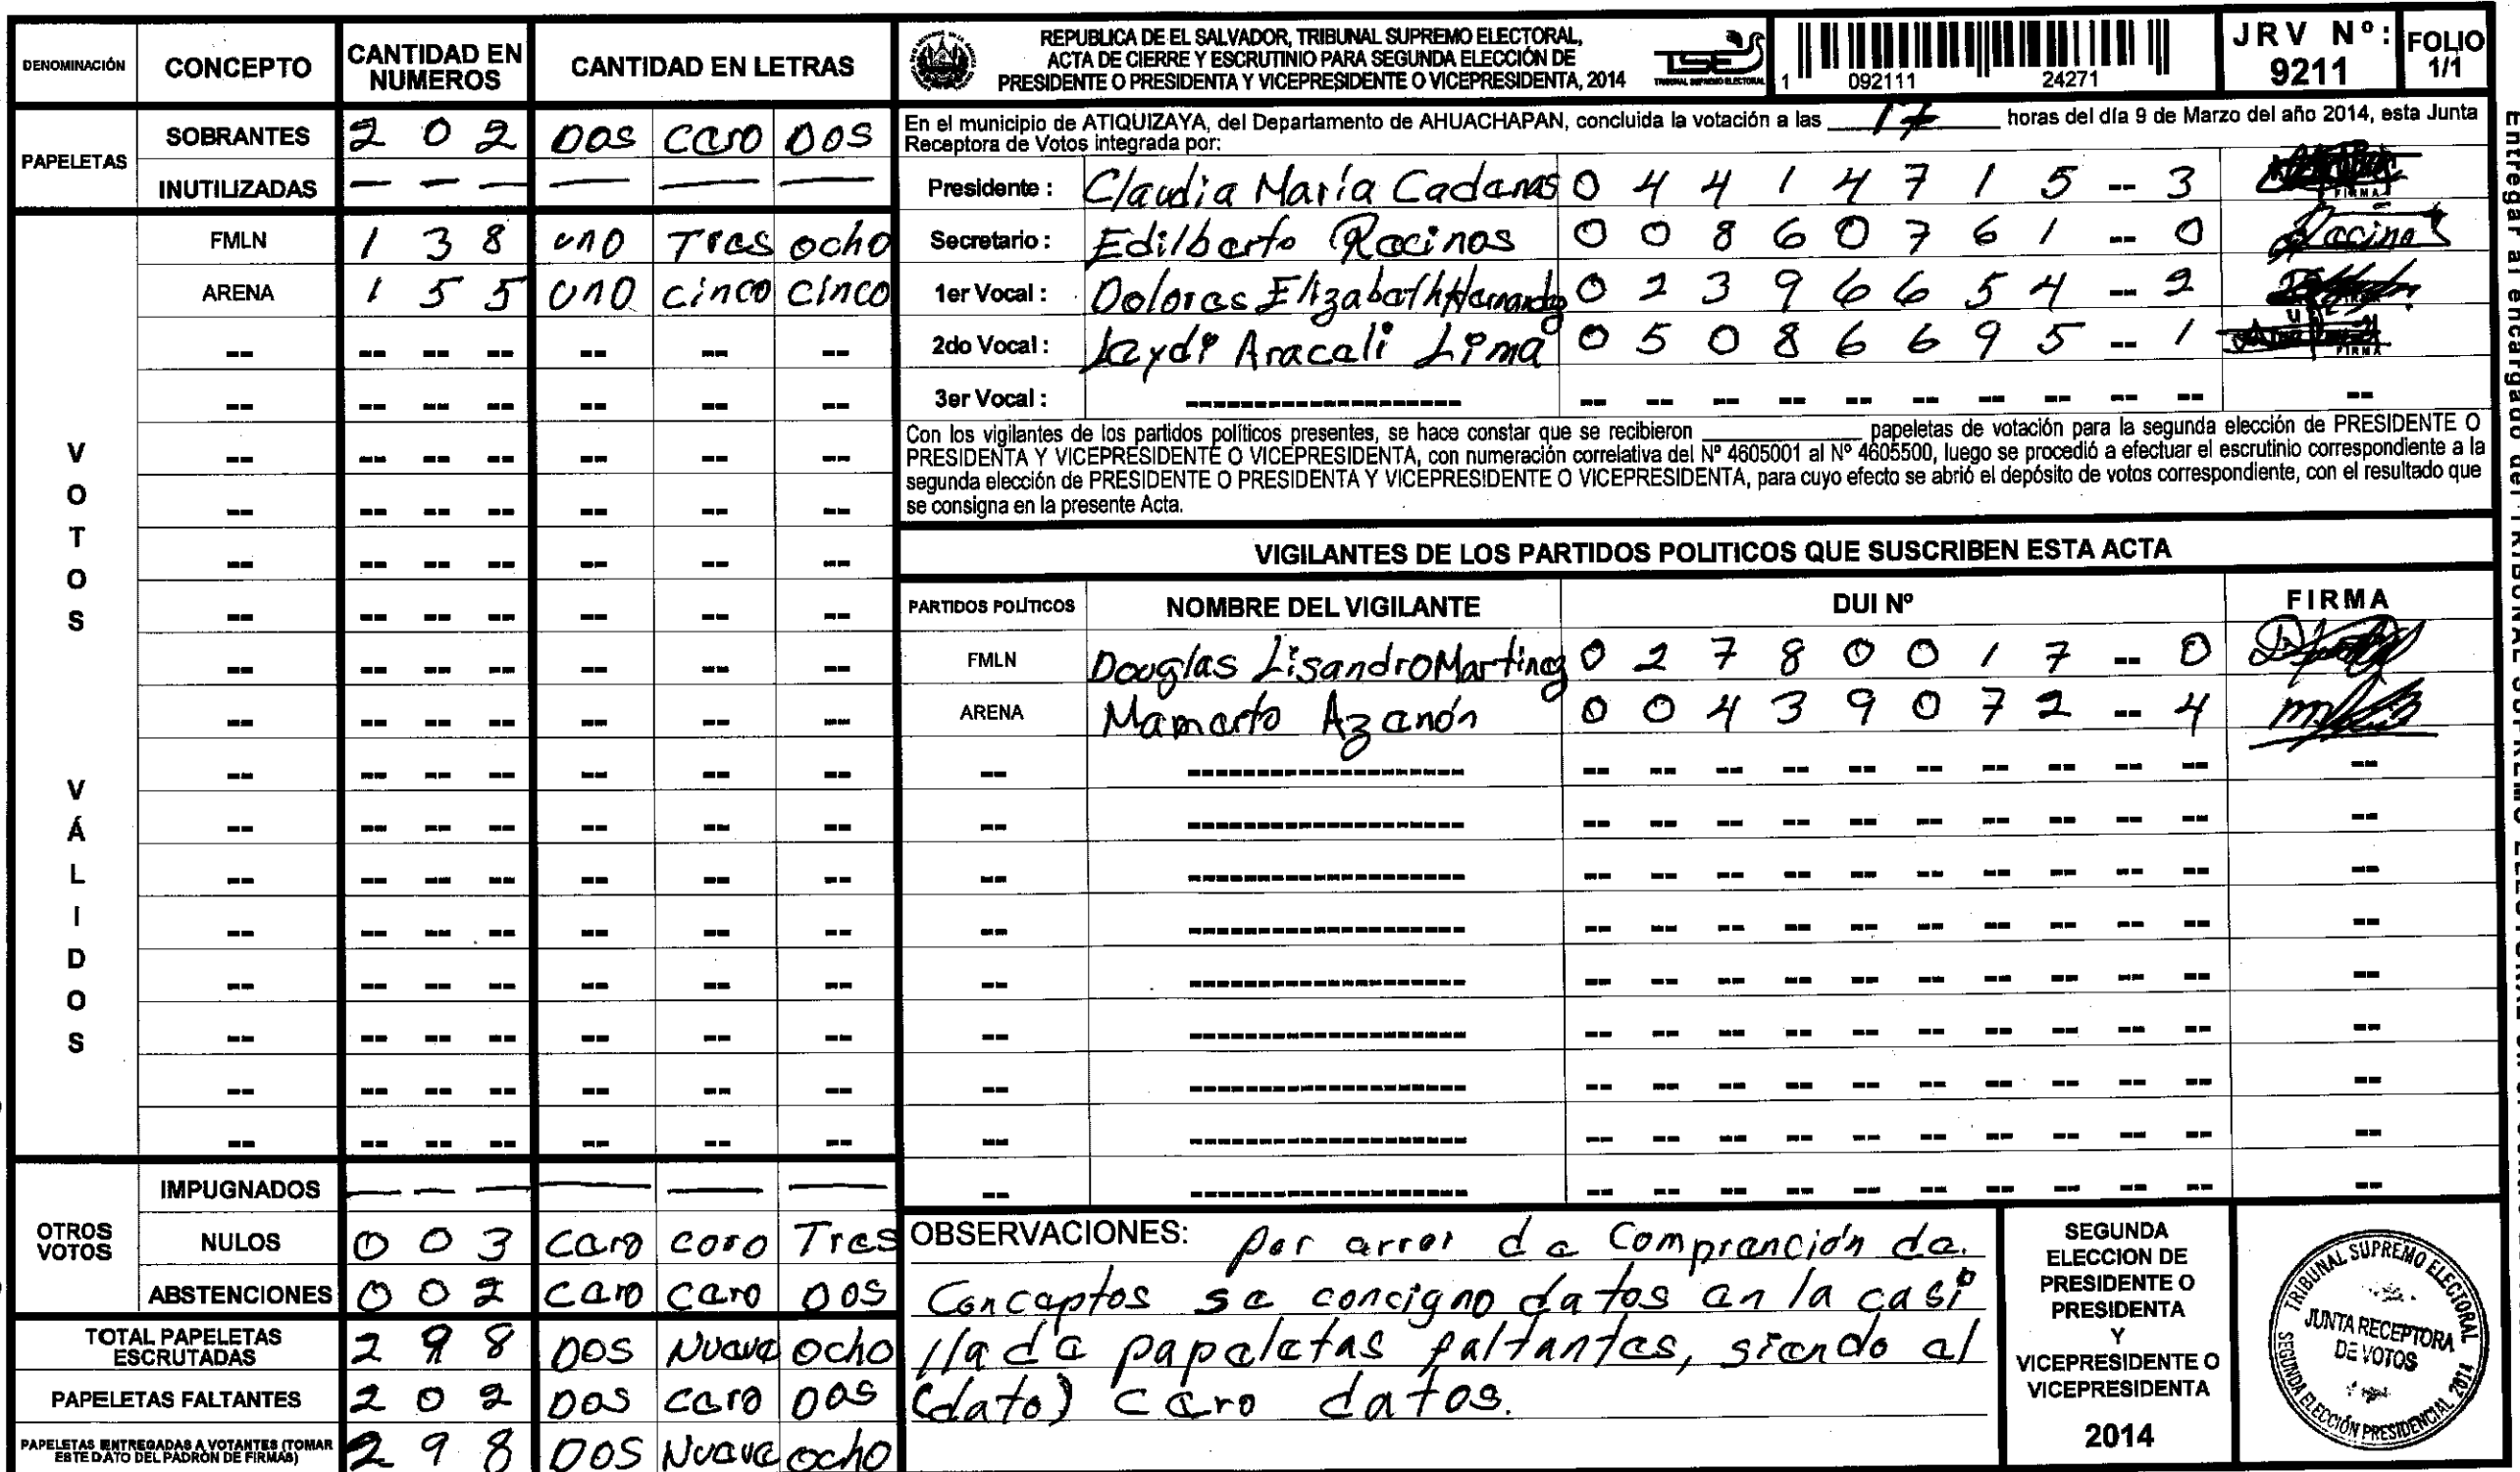 DENOMINACIÓN CONCEPTO CANTIDAD EN NUMEROS CANTIDAD EN LETRAS
PAPELETAS
SOBRANTES 2 0 2 DOS cero DOS
INUTILIZADAS — — — — — —
VOTOS VÁLIDOS
FMLN 1 3 8 uno Tres ocho
ARENA 1 5 5 uno cinco cinco
OTROS VOTOS
IMPUGNADOS — — — — — —
NULOS 0 0 3 cero cero Tres
ABSTENCIONES 0 0 2 cero cero DOS
TOTAL PAPELETAS ESCRUTADAS 2 9 8 DOS Nueve ocho
PAPELETAS FALTANTES 2 0 2 DOS cero DOS
PAPELETAS ENTREGADAS A VOTANTES (TOMAR ESTE DATO DEL PADRÓN DE FIRMAS) 2 9 8 DOS Nueve ocho
REPUBLICA DE EL SALVADOR, TRIBUNAL SUPREMO ELECTORAL,
ACTA DE CIERRE Y ESCRUTINIO PARA SEGUNDA ELECCIÓN DE
PRESIDENTE O PRESIDENTA Y VICEPRESIDENTE O VICEPRESIDENTA, 2014
TSE
TRIBUNAL SUPREMO ELECTORAL
1 092111 24271
JRV Nº: 9211
FOLIO 1/1
En el municipio de ATIQUIZAYA, del Departamento de AHUACHAPAN, concluida la votación a las 17 horas del día 9 de Marzo del año 2014, esta Junta
Receptora de Votos integrada por:
Presidente : Claudia María Cadenas 0 4 4 1 4 7 1 5 -- 3
Secretario : Edilberto Recinos 0 0 8 6 0 7 6 1 -- 0 Recinos
1er Vocal : Dolores Elizabeth Hernandez 0 2 3 9 6 6 5 4 -- 2
2do Vocal : Leydi Araceli Lima 0 5 0 8 6 6 9 5 -- 1
3er Vocal :
Con los vigilantes de los partidos políticos presentes, se hace constar que se recibieron ____ papeletas de votación para la segunda elección de PRESIDENTE O
PRESIDENTA Y VICEPRESIDENTE O VICEPRESIDENTA, con numeración correlativa del Nº 4605001 al Nº 4605500, luego se procedió a efectuar el escrutinio correspondiente a la
segunda elección de PRESIDENTE O PRESIDENTA Y VICEPRESIDENTE O VICEPRESIDENTA, para cuyo efecto se abrió el depósito de votos correspondiente, con el resultado que
se consigna en la presente Acta.
VIGILANTES DE LOS PARTIDOS POLITICOS QUE SUSCRIBEN ESTA ACTA
PARTIDOS POLÍTICOS NOMBRE DEL VIGILANTE DUI Nº FIRMA
FMLN Douglas Lisandro Martinez 0 2 7 8 0 0 1 7 -- 0
ARENA Mamerto Azenón 0 0 4 3 9 0 7 2 -- 4
OBSERVACIONES: Por error de Comprención de
Conceptos se concigno datos en la casi
lla de papeletas faltantes, siendo el
(dato) cero datos.
SEGUNDA
ELECCION DE
PRESIDENTE O
PRESIDENTA
Y
VICEPRESIDENTE O
VICEPRESIDENTA
2014
TRIBUNAL SUPREMO ELECTORAL
JUNTA RECEPTORA
DE VOTOS
SEGUNDA ELECCIÓN PRESIDENCIAL 2014
Entregar al encargado del TRIBUNAL SUPREMO ELECTORAL